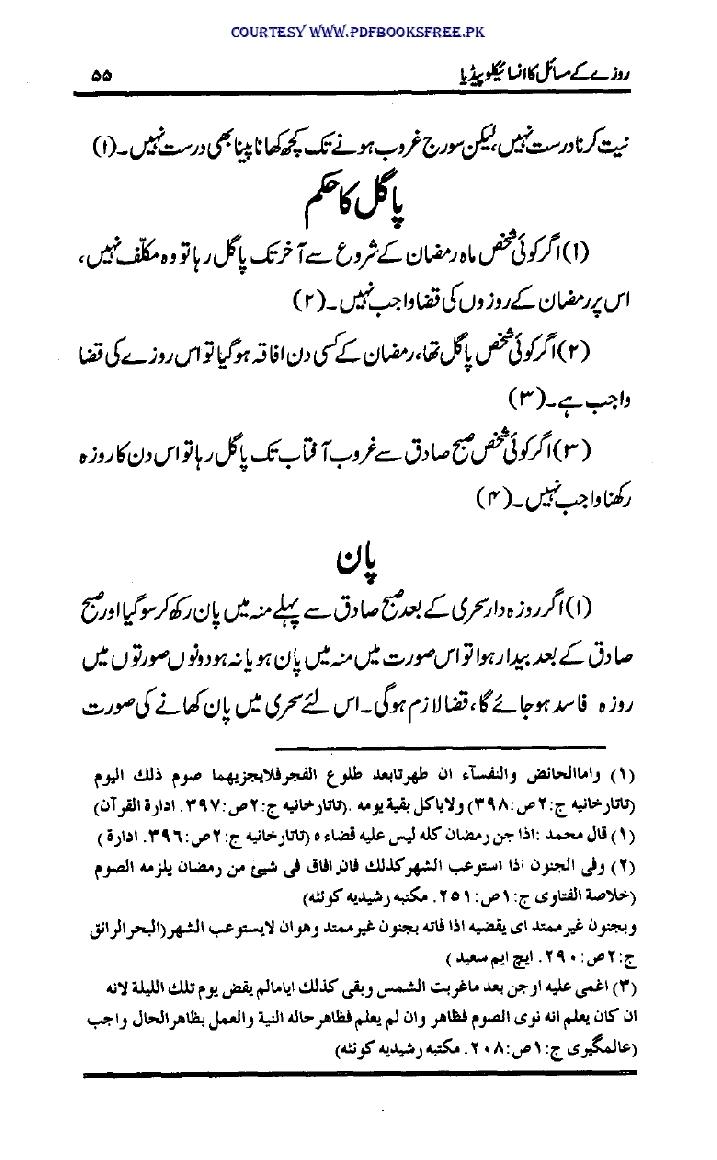 COURTESY WWW.PDFBOOKSFREE.PK
روزے کے مسائل کا انسائیکلوپیڈیا ۵۵
نیت کرنا درست نہیں، لیکن سورج غروب ہونے تک کچھ کھانا پینا بھی درست نہیں۔(۱)
پاگل کا حکم
(۱) اگر کوئی شخص ماہ رمضان کے شروع سے آخر تک پاگل رہا تو وہ مکلّف نہیں،
اس پر رمضان کے روزوں کی قضا واجب نہیں۔(۲)
(۲) اگر کوئی شخص پاگل تھا، رمضان کے کسی دن افاقہ ہو گیا تو اس روزے کی قضا
واجب ہے۔(۳)
(۳) اگر کوئی شخص صبح صادق سے غروب آفتاب تک پاگل رہا تو اس دن کا روزہ
رکھنا واجب نہیں۔(۴)
پان
(۱) اگر روزہ دار سحری کے بعد صبح صادق سے پہلے منہ میں پان رکھ کر سو گیا اور صبح
صادق کے بعد بیدار ہوا تو اس صورت میں منہ میں پان ہو یا نہ ہو دونوں صورتوں میں
روزہ فاسد ہو جائے گا، قضا لازم ہوگی۔ اس لئے سحری میں پان کھانے کی صورت
(۱) واما الحائض والنفسآء ان طهرتا بعد طلوع الفجر فلایجزیهما صوم ذلك الیوم
(تاتارخانیه ج:۲ ص:۳۹۸) ولایاکل بقیة یومه .(تاتارخانیه ج:۲ ص:۳۹۷. ادارة القرآن)
(۱) قال محمد :اذا جن رمضان کله لیس علیه قضاء ه (تاتارخانیه ج:۲ ص:۳۹۶. ادارة )
(۲) وفی الجنون اذا استوعب الشهر کذلك فان افاق فی شیئ من رمضان یلزمه الصوم
(خلاصة الفتاوی ج:۱ ص:۲۵۱. مکتبه رشیدیه کوئٹه)
وبجنون غیرممتد ای یقضیه اذا فاته بجنون غیرممتد وهو ان لایستوعب الشهر(البحرالرائق
ج:۲ ص:۲۹۰. ایچ ایم سعید )
(۳) اغمی علیه اوجن بعد ماغربت الشمس وبقی کذلك ایاما لم یقض یوم تلك اللیلة لانه
ان کان یعلم انه نوی الصوم فظاهر وان لم یعلم فظاهر حاله النیة والعمل بظاهر الحال واجب
(عالمگیری ج:۱ ص:۲۰۸. مکتبه رشیدیه کوئٹه)